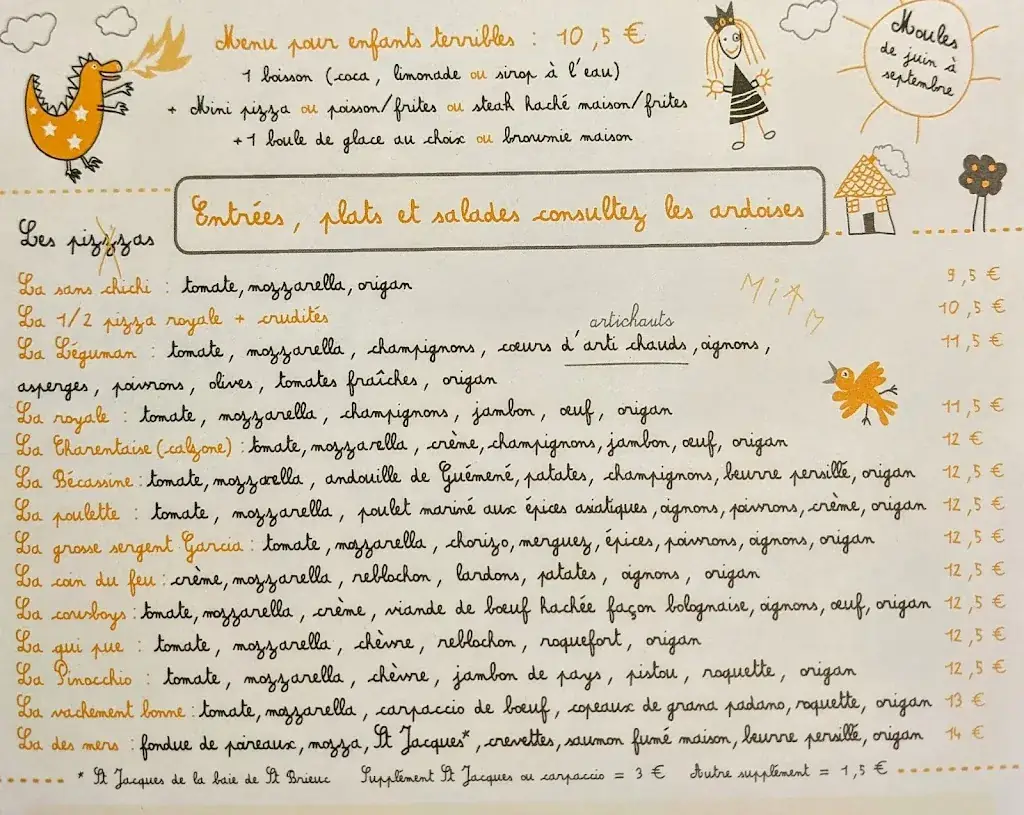 Menu pour enfants terribles : 10,5 €
1 boisson (coca, limonade ou sirop à l'eau)
+ Mini pizza ou poisson/frites ou steak haché maison/frites
+ 1 boule de glace au choix ou brownie maison
Moules
de juin à
septembre
Entrées, plats et salades consultez les ardoises
Les pizzzas
MiAM
La sans chichi : tomate, mozzarella, origan 9,5 €
La 1/2 pizza royale + crudités 10,5 €
artichauts
La Léguman : tomate, mozzarella, champignons, coeurs d'arti chauds, oignons, 11,5 €
asperges, poivrons, olives, tomates fraîches, origan
La royale : tomate, mozzarella, champignons, jambon, oeuf, origan 11,5 €
La Charentaise (calzone) : tomate, mozzarella, crème, champignons, jambon, oeuf, origan 12 €
La Bécassine : tomate, mozzarella, andouille de Guémené, patates, champignons, beurre persillé, origan 12,5 €
La poulette : tomate, mozzarella, poulet mariné aux épices asiatiques, oignons, poivrons, crème, origan 12,5 €
La grosse sergent Garcia : tomate, mozzarella, chorizo, merguez, épices, poivrons, oignons, origan 12,5 €
La coin du feu : crème, mozzarella, reblochon, lardons, patates, oignons, origan 12,5 €
La cowboys : tomate, mozzarella, crème, viande de boeuf hachée façon bolognaise, oignons, oeuf, origan 12,5 €
La qui pue : tomate, mozzarella, chèvre, reblochon, roquefort, origan 12,5 €
La Pinocchio : tomate, mozzarella, chèvre, jambon de pays, pistou, roquette, origan 12,5 €
La vachement bonne : tomate, mozzarella, carpaccio de boeuf, copeaux de grana padano, roquette, origan 13 €
La des mers : fondue de poireaux, mozza, St Jacques*, crevettes, saumon fumé maison, beurre persillé, origan 14 €
* St Jacques de la baie de St Brieuc Supplément St Jacques ou carpaccio = 3 € Autre supplément = 1,5 €